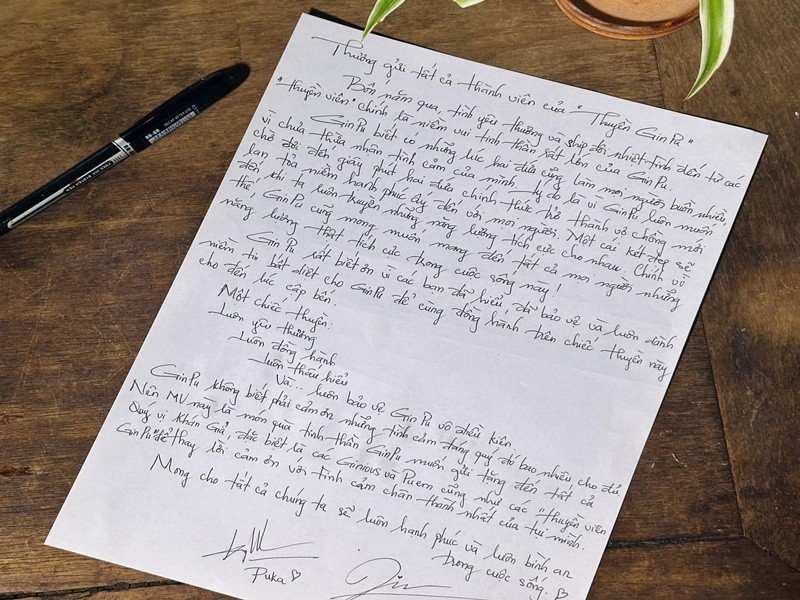 Thương gửi tất cả thành viên của "Thuyền GinPu"
Bốn năm qua, tình yêu thương và ship đôi nhiệt tình đến từ các
"thuyền viên" chính là niềm vui tinh thần rất lớn của GinPu.
GinPu biết có những lúc hai đứa cũng làm mọi người buồn nhiều
vì chưa thừa nhận tình cảm của mình. Lý do là vì GinPu luôn muốn
chờ đợi đến giây phút hai đứa chính thức trở thành vợ chồng mới
lan toả niềm hạnh phúc ấy đến với mọi người. Một cái kết đẹp sẽ
đến khi ta luôn truyền những năng lượng tích cực cho nhau. Chính vì
thế, GinPu cũng mong muốn mang đến tất cả mọi người những
năng lượng thật tích cực trong cuộc sống này!
GinPu rất biết ơn vì các bạn đã hiểu, đã bảo vệ và luôn dành
niềm tin bất diệt cho GinPu để cùng đồng hành trên chiếc thuyền này
cho đến lúc cập bến.
Một chiếc thuyền:
Luôn yêu thương
Luôn đồng hành
Luôn thấu hiểu
Và... luôn bảo vệ GinPu vô điều kiện
GinPu không biết phải cảm ơn những tình cảm đáng quý đó bao nhiêu cho đủ
Nên MV này là món quà tinh thần GinPu muốn gửi tặng đến tất cả
Quý vị Khán Giả, đặc biệt là các Ginious và Puem cũng như các "Thuyền viên
GinPu" để thay lời cảm ơn với tình cảm chân thành nhất của tụi mình.
Mong cho tất cả chúng ta sẽ luôn hạnh phúc và luôn bình an
trong cuộc sống. ♡
Puka ♡